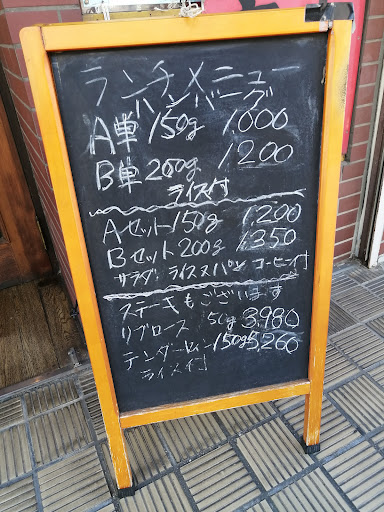 ランチメニュー
ハンバーグ
A単 150g 1,000
B単 200g 1200
ライス付
Aセット 150g 1,200
Bセット 200g 1350
サラダ ライス パン コーヒー付
ステーキもございます
リブロース 150g 3,980
テンダーロイン 150g 5,260
ライス付